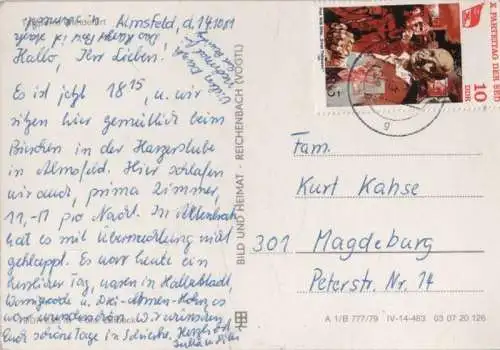 Almsfeld, d. 14.10.81
Hallo, Ihr Lieben!
Es ist jetzt 18¹⁵, u. wir
sitzen hier gemütlich beim
Bierchen in der Harzerstube
in Almsfeld. Hier schlafen
wir auch, prima Zimmer,
11,-M pro Nacht. In Altenbrak
hat es mit Übernachtung nicht
geklappt. Es war heute ein
herrlicher Tag, waren in
Wernigerode u. Drei-Annen-Hohne, es
war wunderschön. Wir wünschen
Euch schöne Tage in
BILD UND HEIMAT - REICHENBACH (VOGTL)
X. PARTEITAG DER SED
10
DDR
Fam.
Kurt Kahse
301 Magdeburg
Peterstr. Nr. 14
A 1/B 777/79 IV-14-483 03 07 20 126